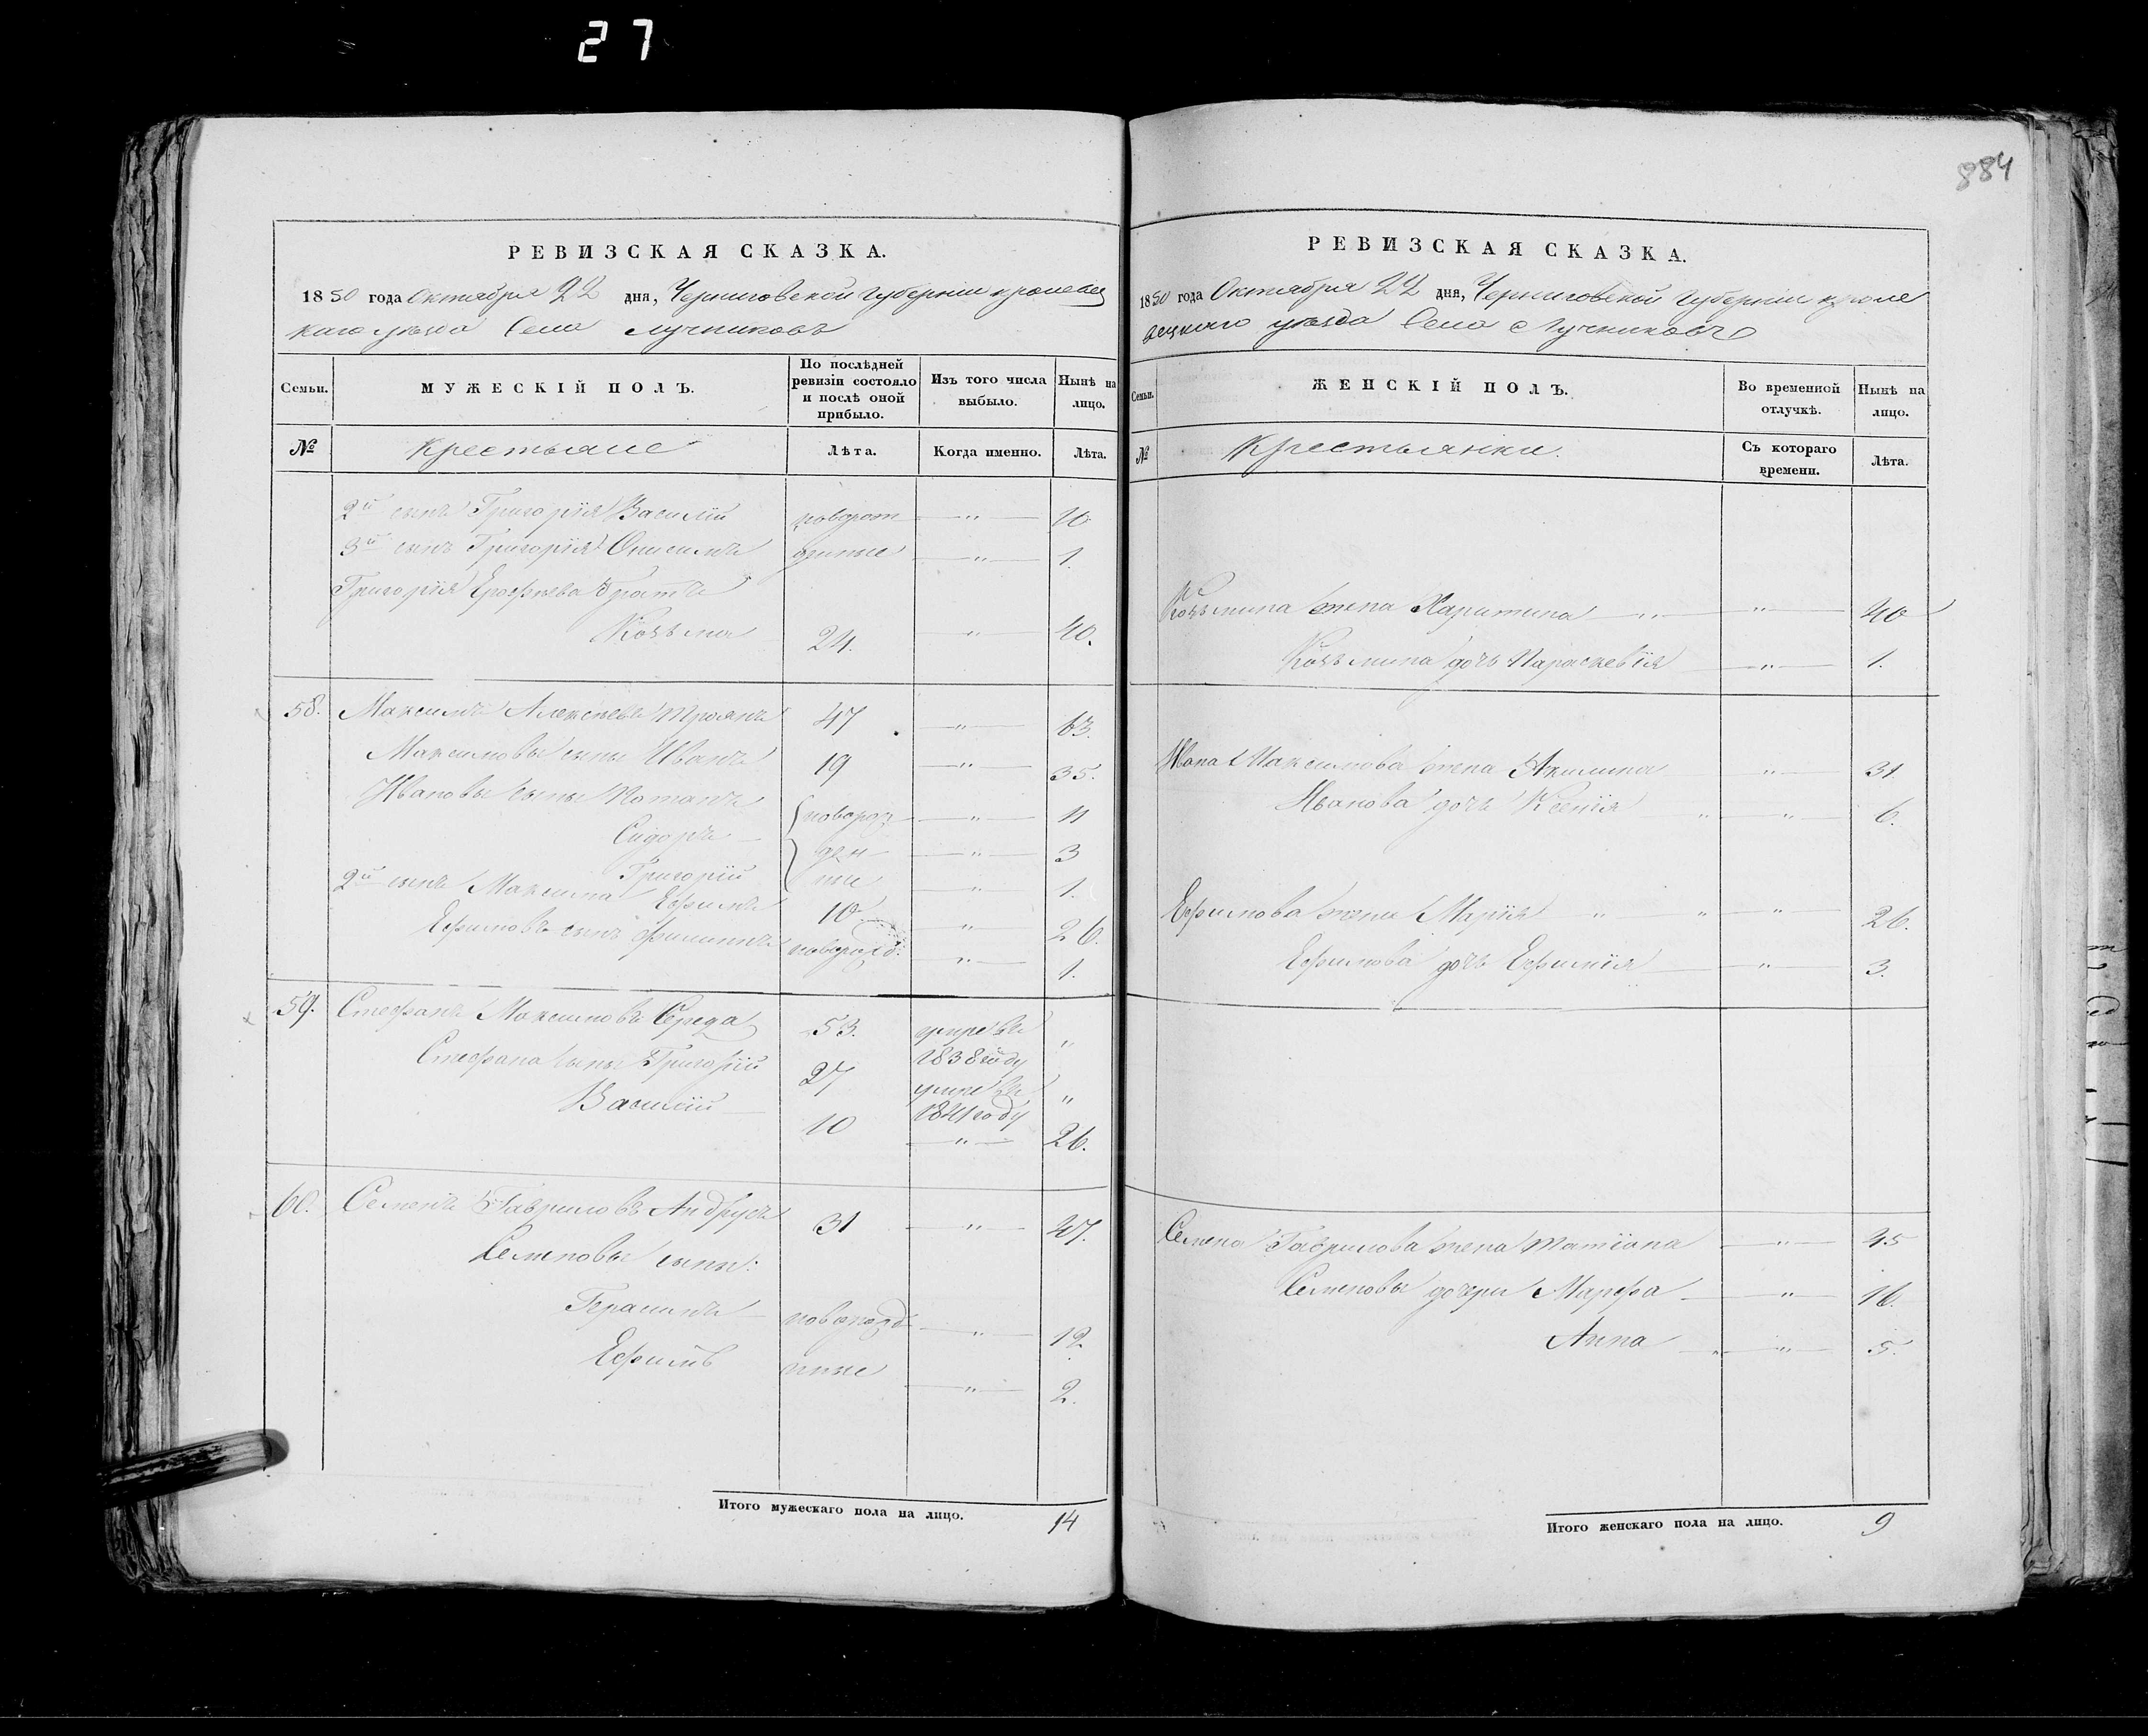 27
884
РЕВИЗСКАЯ СКАЗКА.
1850 года Октября 22 дня, Черниговской Губернии кролевец
каго уѣзда Села Лучниковъ
Семьи. МУЖЕСКІЙ ПОЛЪ. По послѣдней ревизіи состояло и послѣ оной прибыло. Изъ того числа выбыло. Нынѣ на лицо.
№ Крестьяне Лѣта. Когда именно. Лѣта.
2й сынъ Григорія Василій новорож — " —
3й сынъ Григорія Онисимъ денные — " — 1.
Григорія Ерофѣева братъ
Козьма 24. — " — 40.
58. Максимъ Алексѣевъ Троянъ 47 — " — 63.
Максимовы сыны Иванъ 19 — " — 35.
Ивановы сыны Потапъ новорож — " — 11
Сидоръ — ден — " — 3
Григорій ные — " — 1.
2й сынъ Максима Ефимъ 10 — " — 26.
Ефимовъ сынъ Филиппъ новорожд. — " — 1.
59. Стефанъ Максимовъ Середа 53. умре въ 1838 году "
Стефана сыны Григорій 27 умре въ 1841 году "
Василій — 10 — " — 26.
60. Семенъ Гавриловъ Андрусъ 31 — " — 47.
Семеновы сыны:
Герасимъ — новорожд — " — 12
Ефимъ нные — " — 2.
Итого мужескаго пола на лицо. 14
РЕВИЗСКАЯ СКАЗКА.
1850 года Октября 22 дня, Черниговской Губерніи кроле
вецкаго уѣзда Села Лучниковъ
Семьи. ЖЕНСКІЙ ПОЛЪ. Во временной отлучкѣ. Нынѣ на лицо.
№ Крестьянки. Съ котораго времени. Лѣта.
Козьмина жена Харитина — " — " — 40
Козьмина дочь Параскевія — " — 1.
Ивана Максимова жена Акилина — " — 31.
Иванова дочь Ксенія " — " — 6.
Ефимова жена Марія " " — " — 26.
Ефимова дочь Ефимія — " — 3.
Семена Гаврилова жена Татіана — " — 45
Семеновы дочери Марфа — " — 16.
Анна — " — " — 5.
Итого женскаго пола на лицо. 9